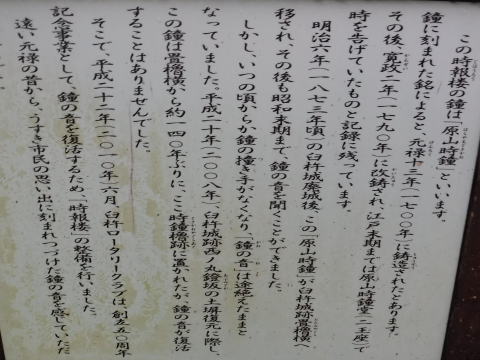 この時報楼の鐘は「原山時鐘」といいます。
鐘に刻まれた銘によると、元禄十三年(一七〇〇年)に鋳造されたとあります。
その後、寛政二年(一七九〇年)に改鋳され、江戸末期までは原山時鐘堂(二王座)で
時を告げていたものと記録に残っています。
明治六年(一八七三年頃)の臼杵城廃城後、この「原山時鐘」が臼杵城跡畳櫓横へ
移され、その後も昭和末期まで、鐘の音を聞くことができました。
しかし、いつの頃からか鐘の撞き手がなくなり、「鐘の音」は途絶えたままと
なっていました。平成二十年(二〇〇八年)、臼杵城跡西ノ丸鐙坂の土塀復元に際し、
この鐘は畳櫓横から約一四〇年ぶりに、ここ時鐘櫓跡に置かれたが、鐘の音が復活
することはありませんでした。
そこで、平成二十二年(二〇一〇年)六月、臼杵ロータリークラブは、創立五〇周年
記念事業として、鐘の音を復活するため、「時報楼」の整備を行いました。
遠い元禄の昔から、うすき市民の思い出に刻まれつづけた鐘の音を感じていただ